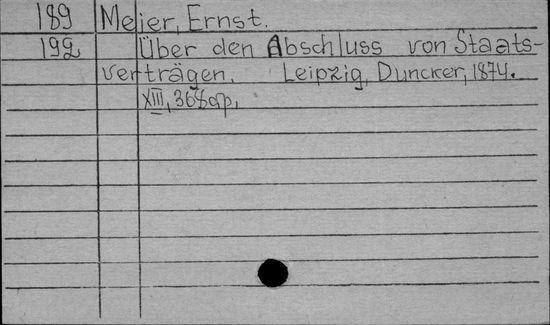 189 Meier, Ernst.
192 Über den Abschluss von Staats-
verträgen. Leipzig, Duncker, 1874.
XIII, 368 op.